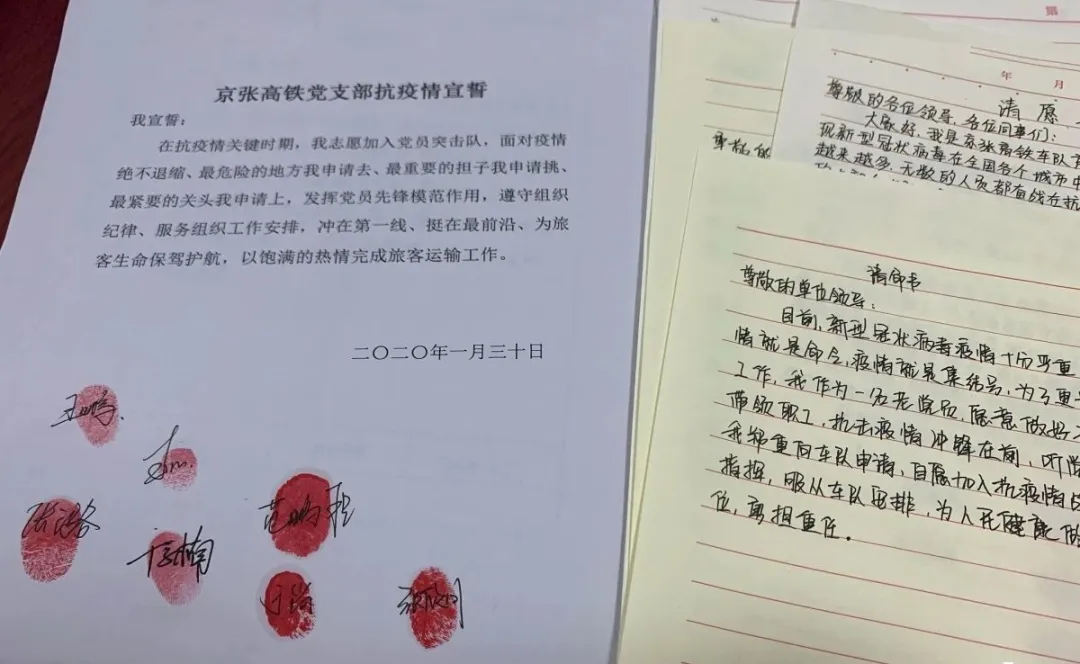 京张高铁党支部抗疫情宣誓
我宣誓：
在抗疫情关键时期，我志愿加入党员突击队，面对疫情
绝不退缩、最危险的地方我申请去、最重要的担子我申请挑、
最紧要的关头我申请上，发挥党员先锋模范作用，遵守组织
纪律、服务组织工作安排，冲在第一线、挺在最前沿、为旅
客生命保驾护航，以饱满的热情完成旅客运输工作。
二〇二〇年一月三十日
王鹏
范鹏程
第
年 月
请愿
尊敬的各位领导、各位同事们：
大家好，我是京张高铁车队
现新型冠状病毒在全国各个城市中
越来越多，无数的人员都奋战在抗
请命书
尊敬的单位领导：
目前，新型冠状病毒疫情十分严重
情就是命令，疫情就是集结号，为了更
工作，我作为一名老党员，愿意做好
带领职工，抗击疫情冲锋在前，听党
我郑重向车队申请，自愿加入抗疫情
指挥，服从车队安排，为人民健康做
位，勇担重任。